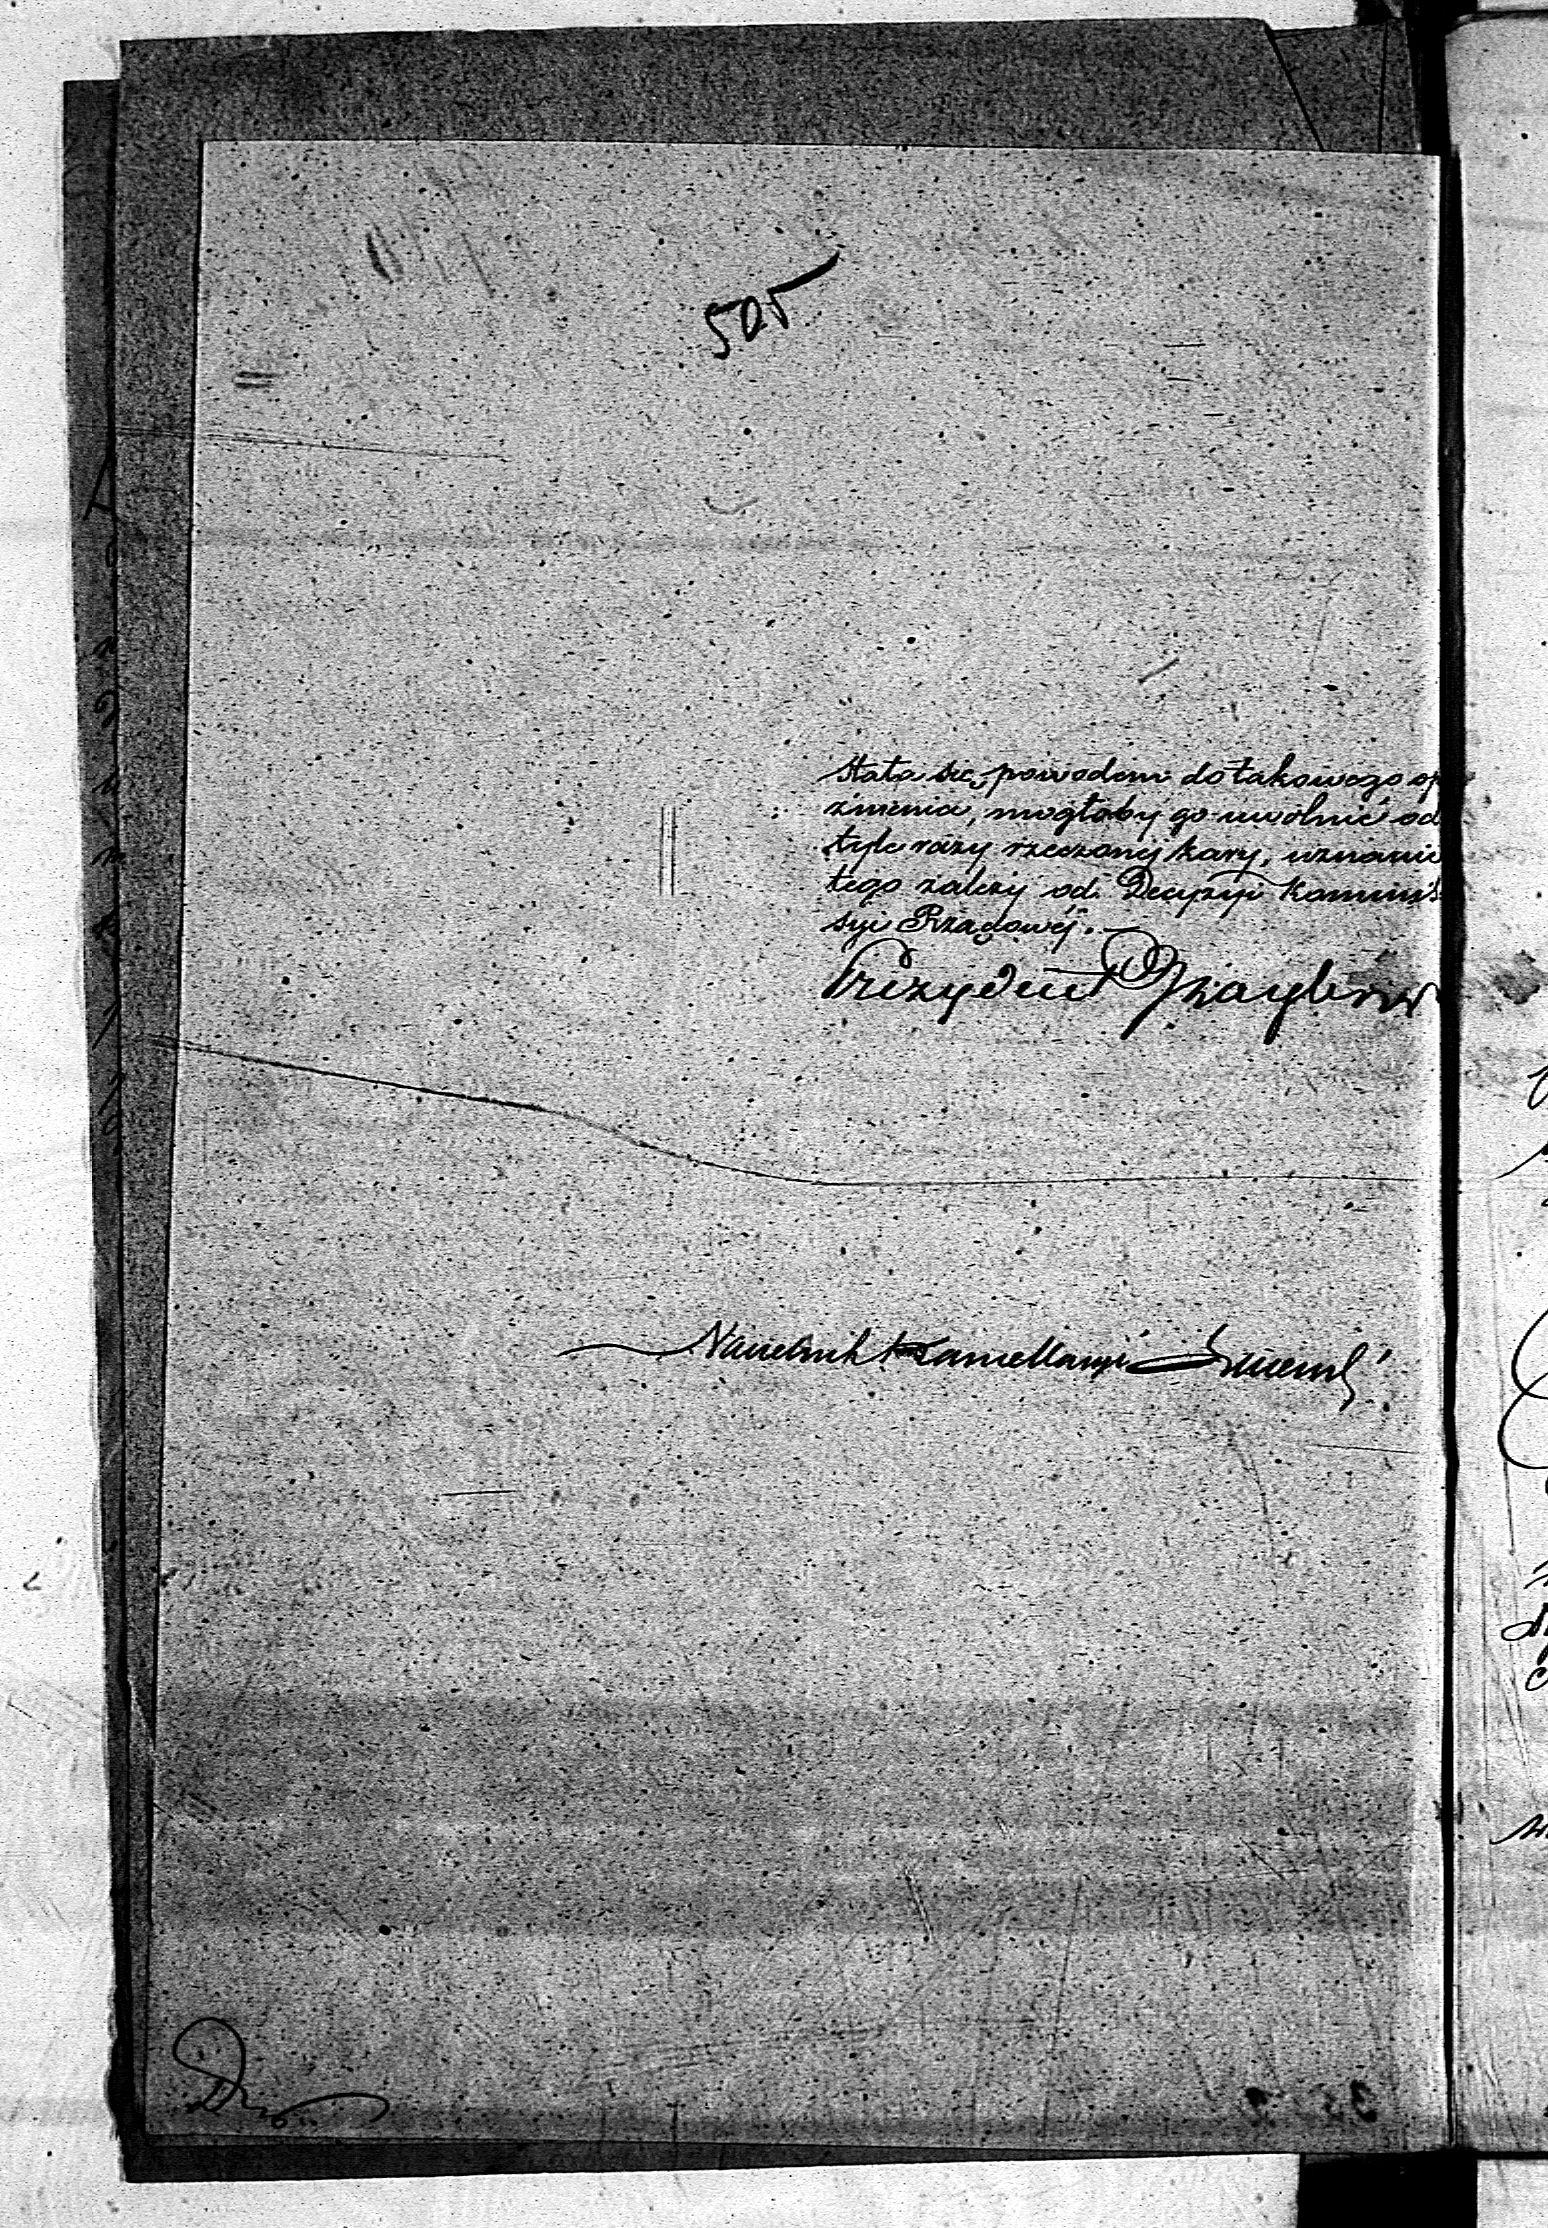 505
stała się powodem do takowego op
źnienia, mogłaby go uwolnić od
tyle razy rzeczonej kary, uznanie
tego zależy od Decyzyi Kommis
syi Rządowéj. —
Prezydent
Naczelnik Kancellaryi